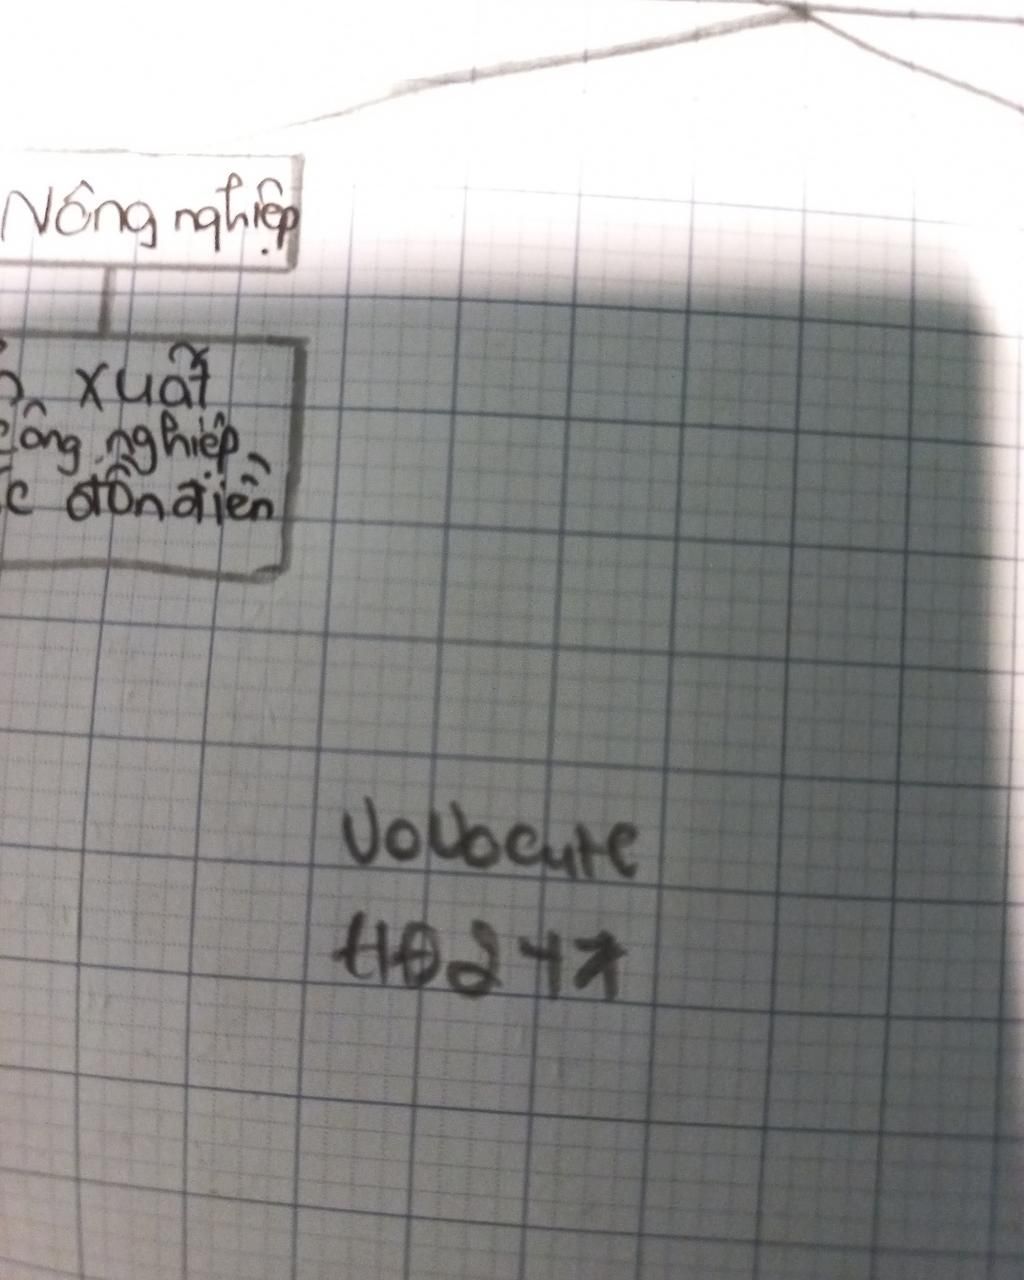 Nông nghiệp
xuất
công nghiệp
đồn điền
VoVocute